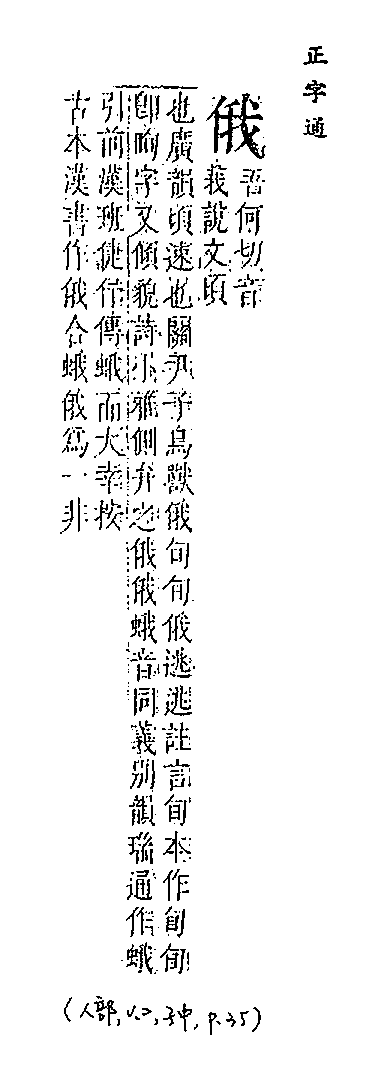 正字通
俄
吾何切音
莪說文頃
也廣韻頃速也關尹子鳥獸俄旬旬俄逃逃註言旬本作旬旬
即呴字又傾貌詩小雅側弁之俄俄蛾音同義別韻瑞通作蛾
引前漢班婕伃傳蛾而大幸按
古本漢書作俄合蛾俄爲一非
(人部, v.2, 子中, p.35)